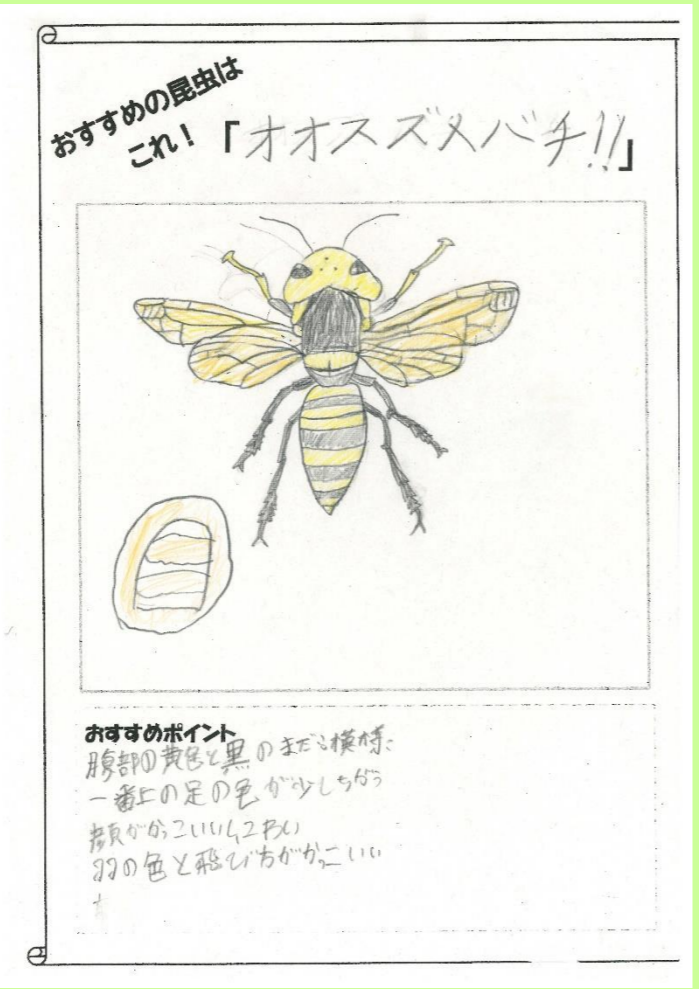 おすすめの昆虫は
これ！「オオスズメバチ!!」
おすすめポイント
腹部の黄色と黒のまだら模様
一番上の足の色が少しちがう
顔がかっこいいし、こわい
羽の色と飛び方がかっこいい